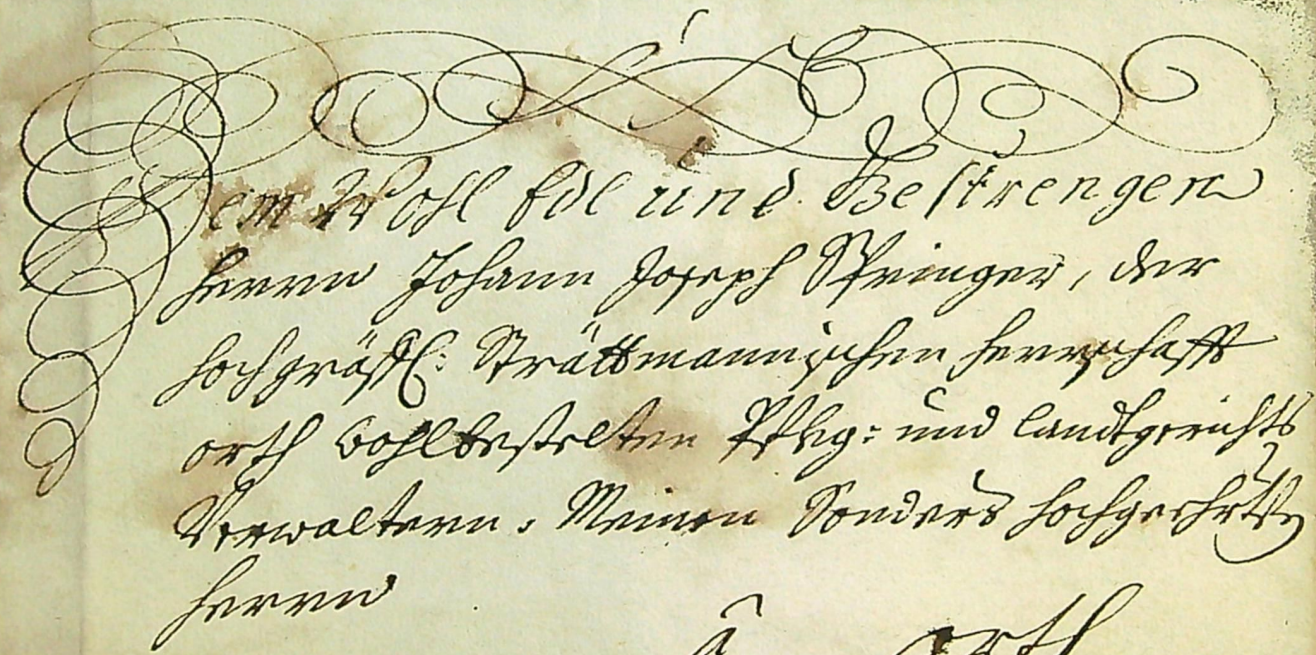 Dem Wohl Edl und Gestrengen
Herrn Johann Joseph Springer, der
hochgräffl: Strättmannischen Herrschafft
orth wohlbestelten Pfleg: und Landtgerichts
Verwaltern. Meinen Sonders hochgeehrtsten
Herrn
orth